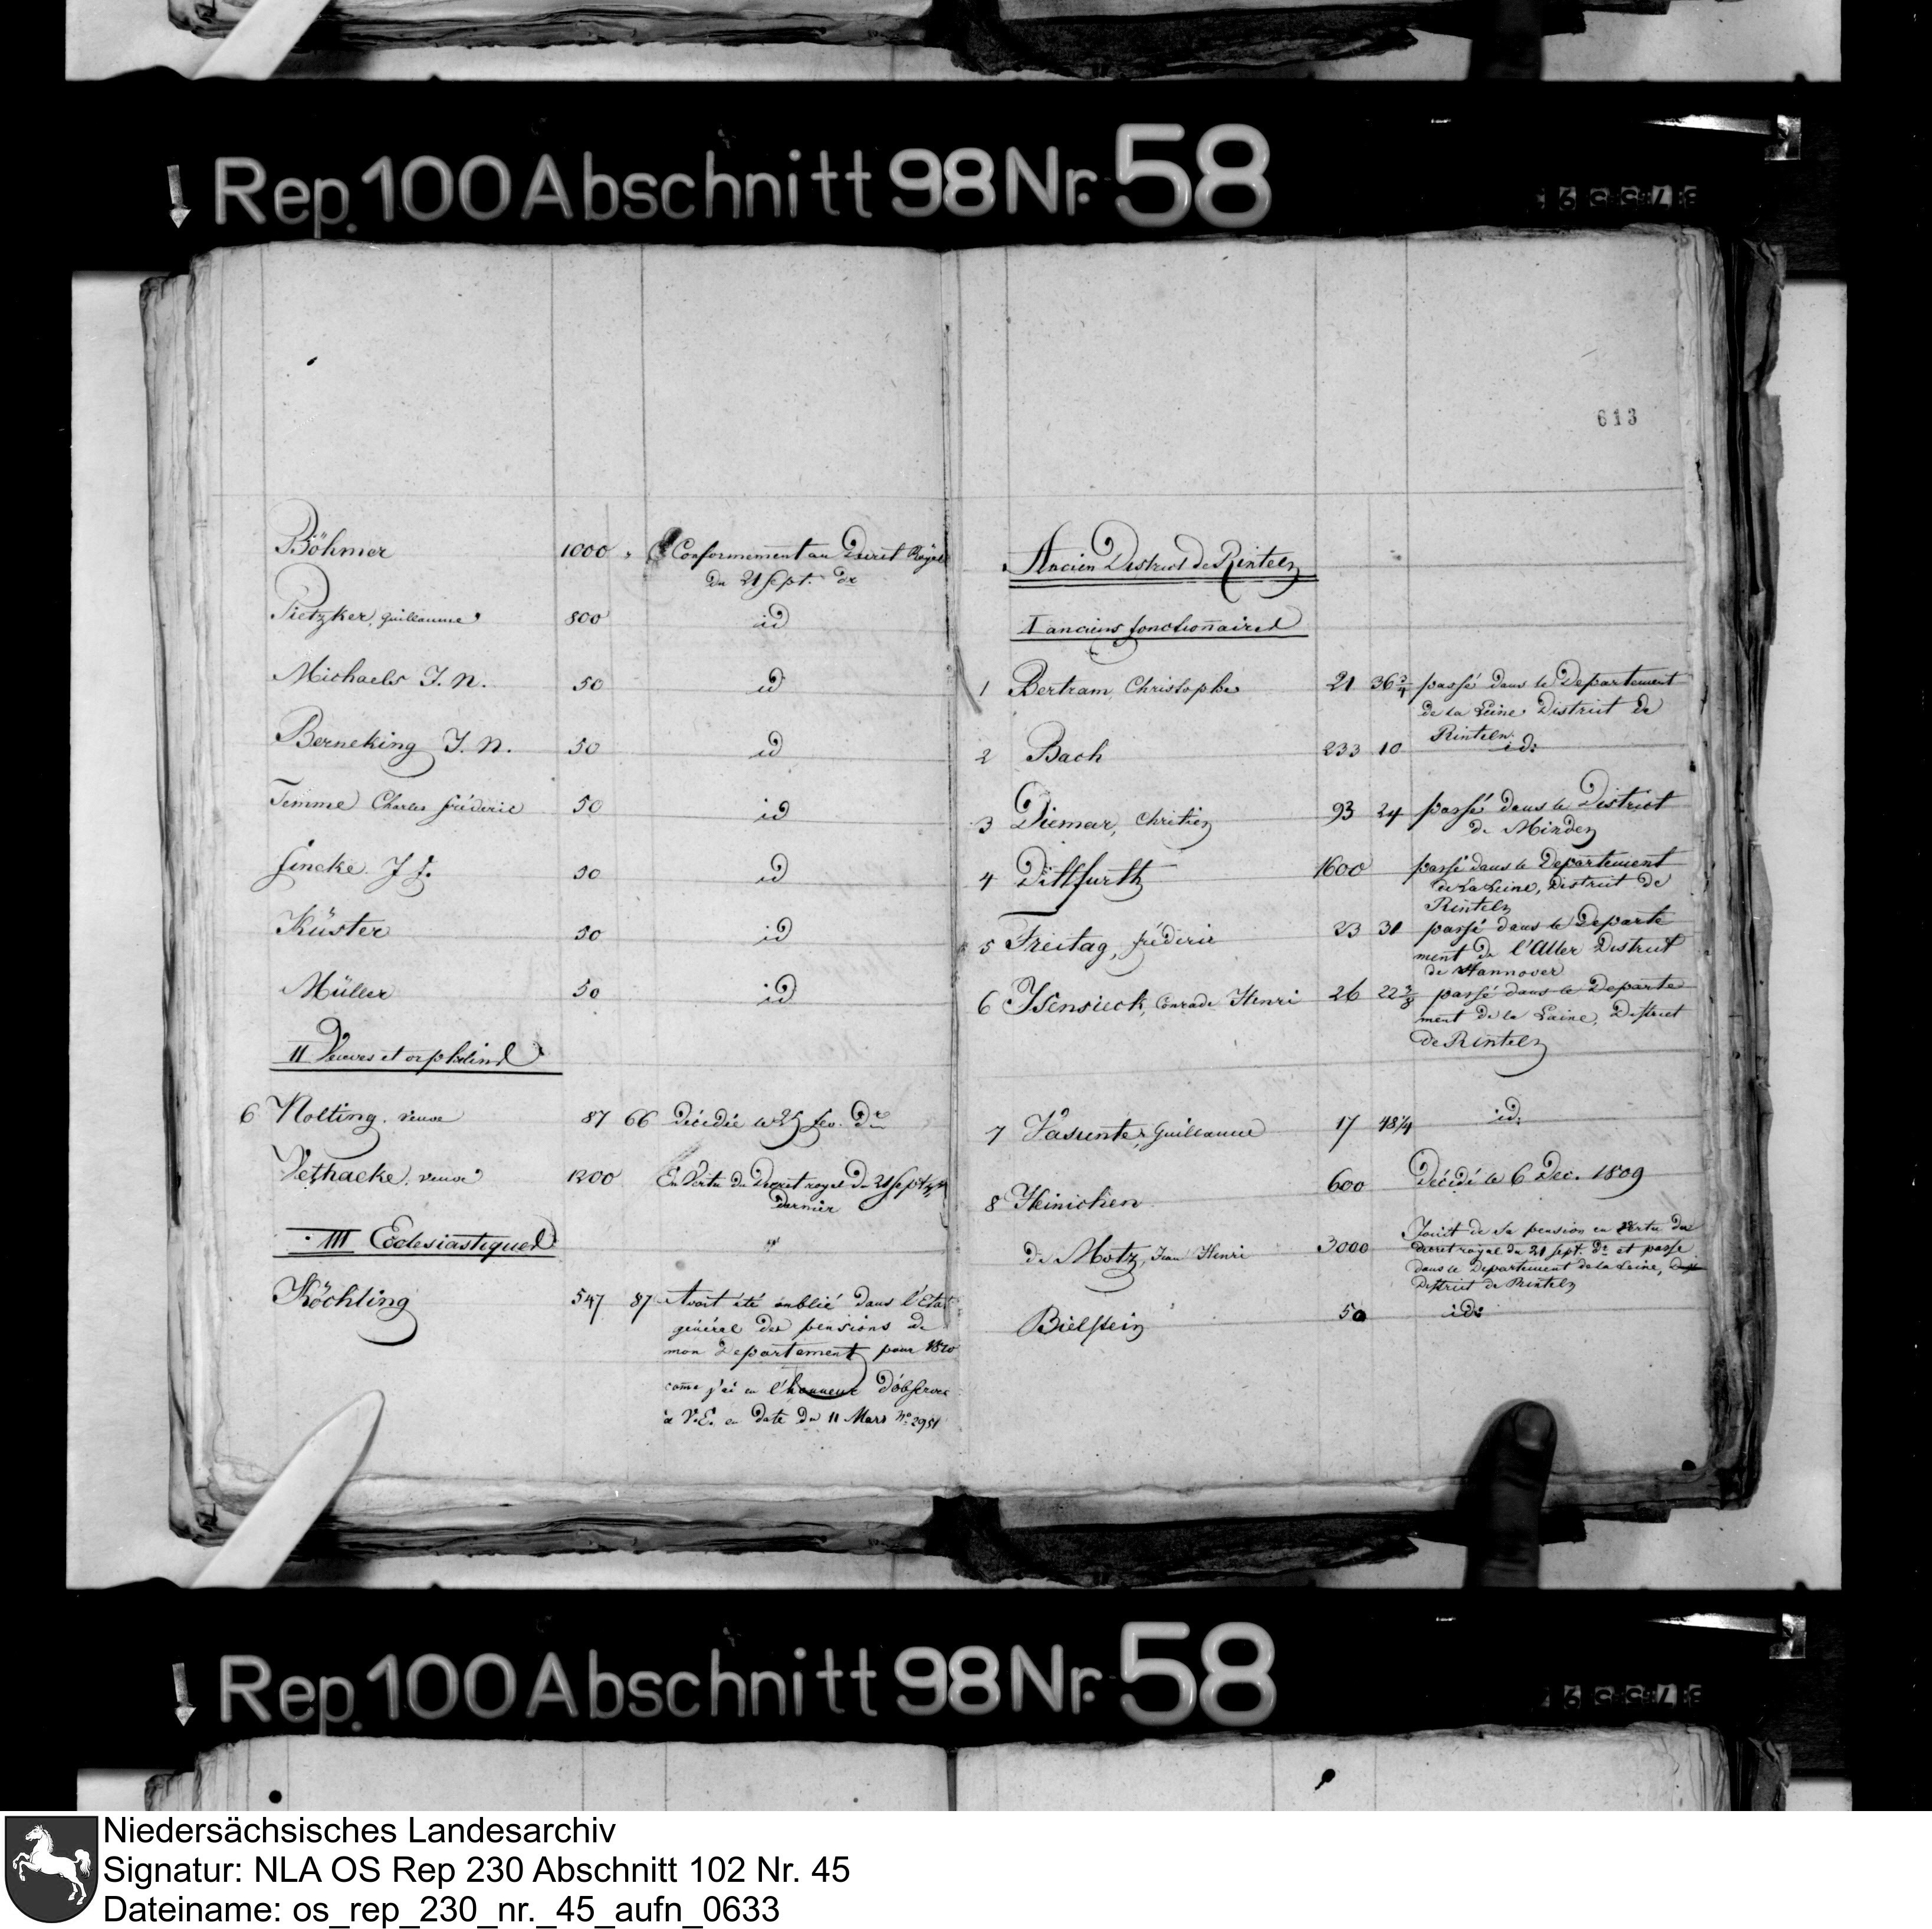 Rep. 100 Abschnitt 98 Nr. 58
Böhmer 1000 " Conformement au Decret Royal
du 21 Sept. dr
Pietzker, Guillaume 800 id
Michaels J. N. 50 id
Berneking J. N. 50 id
Temme Charles fréderic 50 id
fincke J. f. 50 id
Küster 50 id
Müller 50 id
II Veuves et orphelins
6 Nolting, veuve 87 66 décédée le 25 fev. dr
Vethacke, veuve 1200 En Vertu du Decret royal du 21 Sept
dernier
III Ecclesiastiques "
Köchling 547 87 Avoit été oublié dans l'Etat
général des pensions de
mon Departement pour 1810
come j'ai eu l'honneur d'observer
à V. E. en date du 11 Mars No. 2951
613
Ancien District de Rinteln
I anciens fonctionnaires
1 Bertram, Christophe 21 36 3/4 passé dans le Departement
de la Leine District de
Rinteln
2 Bach 233 10 id:
3 Diemar, Chrétien 93 24 passé dans le District
de Minden
4 Dittfurth 1600 passé dans le Departement
de la Leine, District de
Rinteln
5 Freitag, fréderic 23 31 passé dans le Departe
ment de l'Aller District
de Hannover
6 Isensieck, Conrade Henri 26 22 3/8 passé dans le Departe
ment de la Leine, District
de Rinteln
7 Guillaume 17 48 1/4 id:
8 Heinichen 600 Décédé le 6 Dec. 1809
de Motz, Jean Henri 3000 Jouit de sa pension en vertu du
decret royal du 21 Sept. dr et passe
dans le Departement de la Leine,
District de Rinteln
Bielstein 50 id:
Rep. 100 Abschnitt 98 Nr. 58
Niedersächsisches Landesarchiv
Signatur: NLA OS Rep 230 Abschnitt 102 Nr. 45
Dateiname: os_rep_230_nr._45_aufn_0633